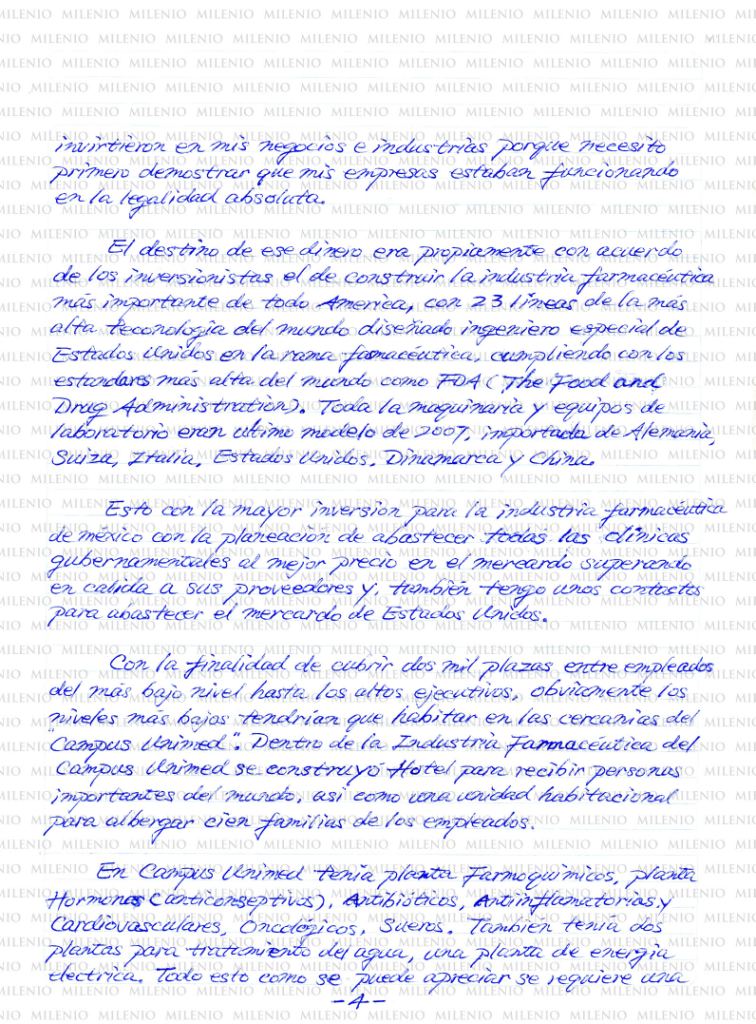 invirtieron en mis negocios e industrias porque necesito
primero demostrar que mis empresas estaban funcionando
en la legalidad absoluta.
El destino de ese dinero era propiamente con acuerdo
de los inversionistas el de construir la industria farmacéutica
más importante de todo America, con 23 lineas de la más
alta teconologia del mundo diseñado ingeniero especial de
Estados Unidos en la rama farmacéutica, cumpliendo con los
estandares más alta del mundo como FDA (The Food and
Drug Administration). Toda la maquinaria y equipos de
laboratorio eran ultimo modelo de 2007, importada de Alemania,
Suiza, Italia, Estados Unidos, Dinamarca y China.
Esto con la mayor inversion para la industria farmacéutica
de méxico con la planeación de abastecer todas las clínicas
gubernamentales al mejor precio en el mercardo superando
en calida a sus proveedores y, también tengo unos contactos
para abastecer el mercardo de Estados Unidos.
Con la finalidad de cubrir dos mil plazas entre empleados
del más bajo nivel hasta los altos ejecutivos, obviamente los
niveles más bajos tendrían que habitar en las cercanias del
"Campus Unimed". Dentro de la Industria Farmacéutica del
Campus Unimed se construyó Hotel para recibir personas
importantes del mundo, asi como una unidad habitacional
para albergar cien familias de los empleados.
En Campus Unimed tenía planta Farmoquimicos, planta
Hormonas (anticonseptivos), Antibióticos, Antiinflamatorias y
Cardiovasculares, Oncológicos, Sueros. También tenia dos
plantas para tratamiento del agua, una planta de energia
electrica. Todo esto como se puede apreciar se requiere una
-4-